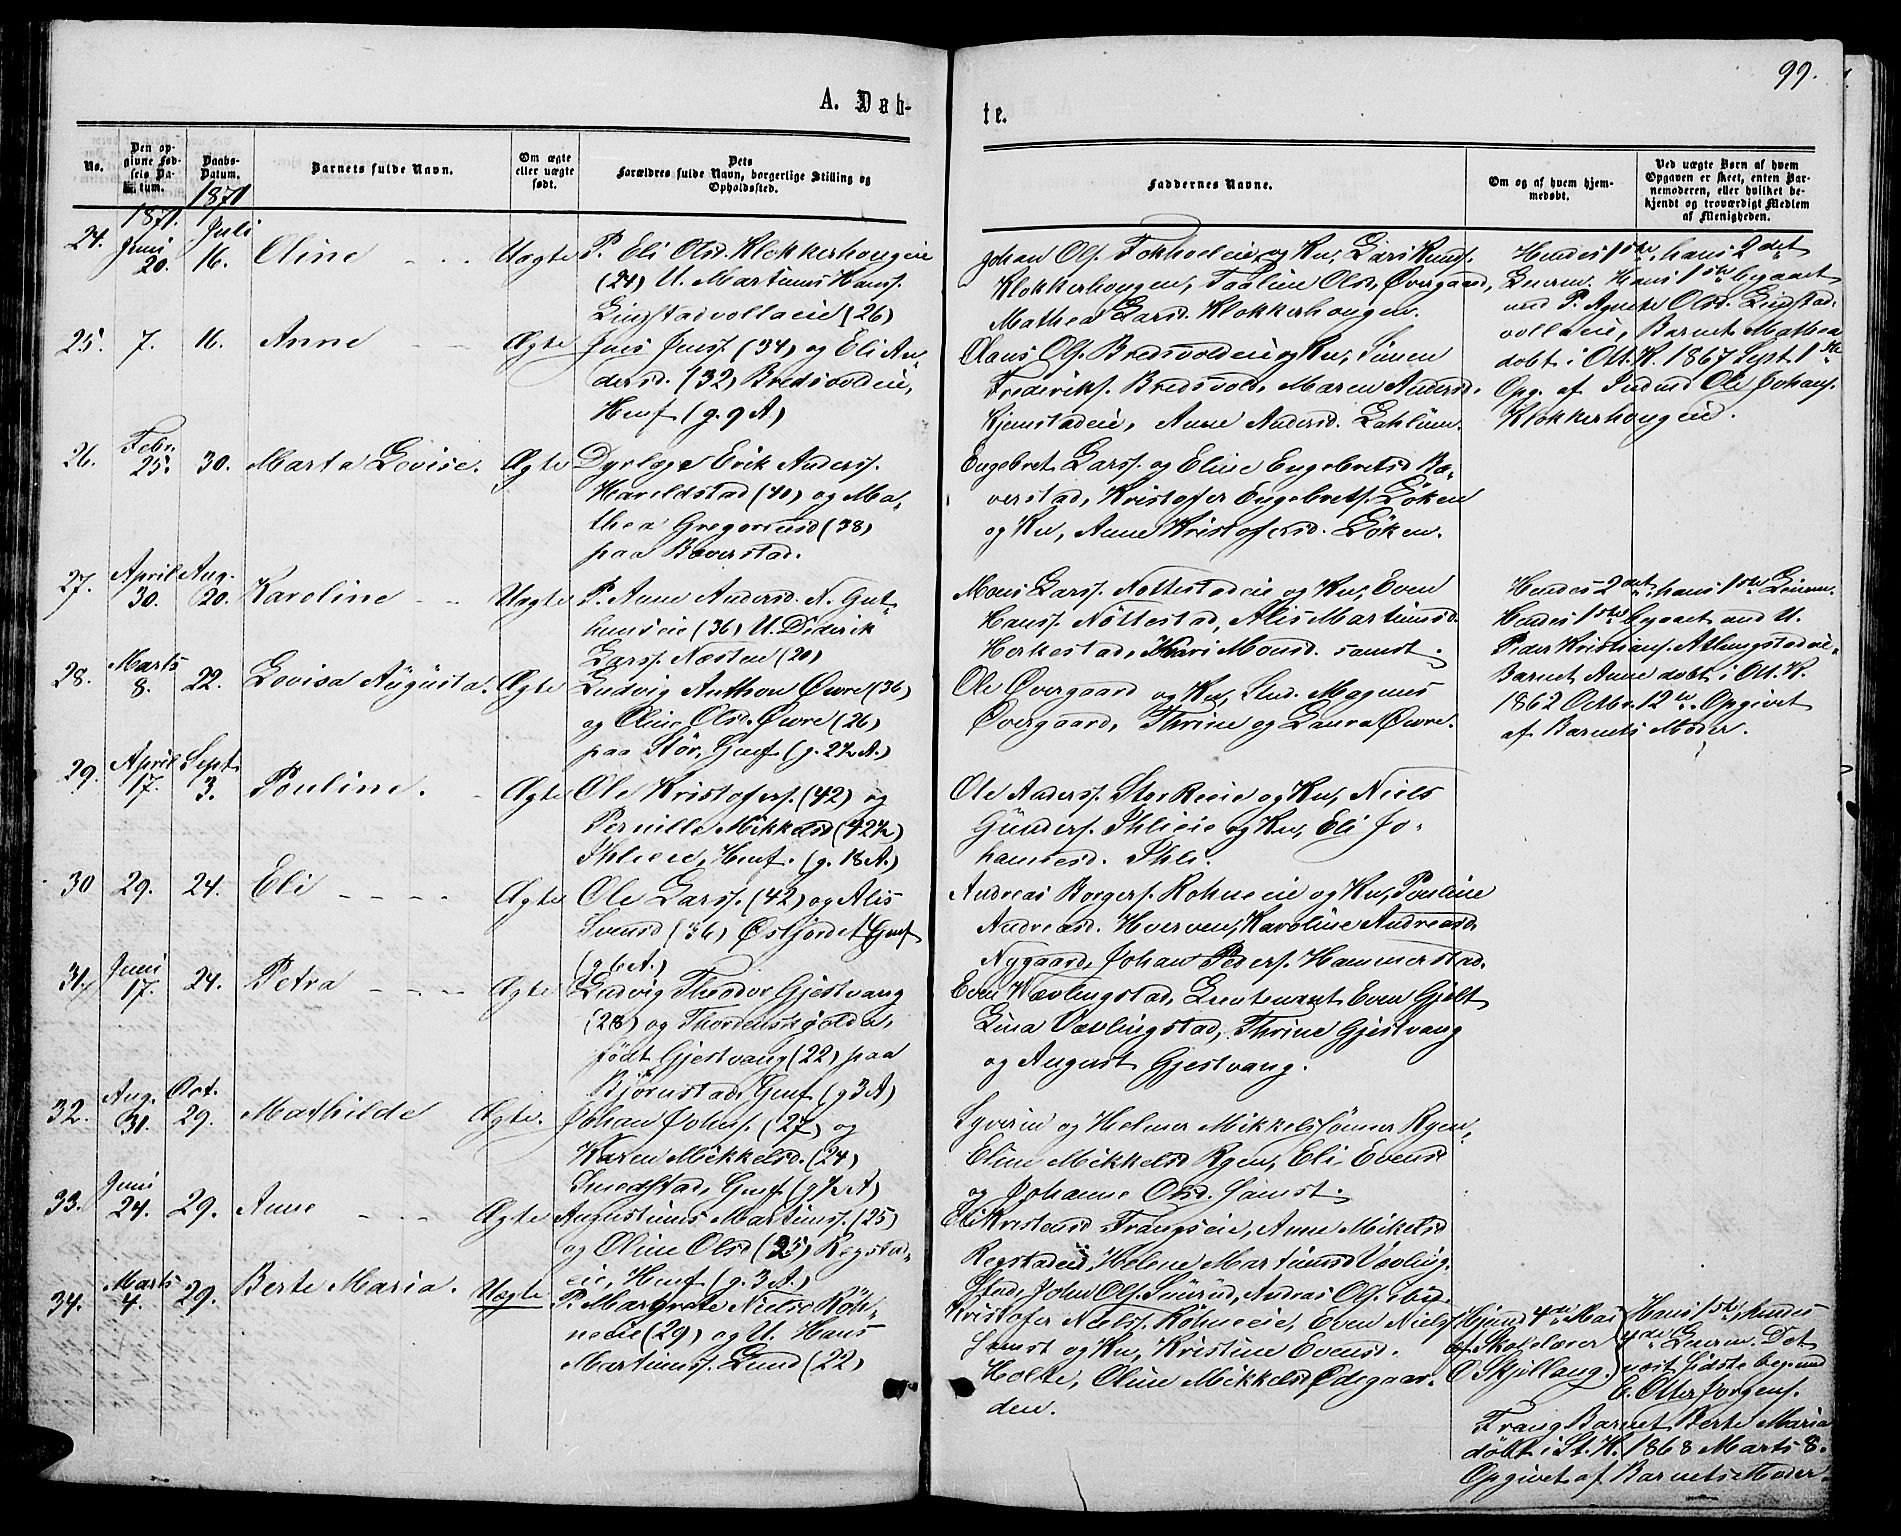 99.
A. Døb-
te.
No.
Den op-
givne Fød-
sels Da-
tum.
Daabs-
Datum.
Barnets fulde Navn.
Om ægte
eller uægte
født.
Dets
Forældres fulde Navn, borgerlige Stilling og
Opholdssted.
Faddernes Navne.
Om og af hvem hjem-
medøbt.
Ved uægte Børn af hvem
Opgaven er skeet, enten Bar-
nemoderen, eller hvilket be-
kjendt og troværdigt Medlem
af Menigheden.
1871. 1871
24. Juni 20. Juli 16. Oline Uægte P. Eli Olsd. Klokkerhougeie
(24) U. Martinus Hanss.
Lingstadvollaeie (26)
Johan Ols. Fokholeie og Kn, Lars Knuds.
Klokkerhougen, Pauline Olsd, Overgaard,
Mathea Larsd. Klokkerhougen.
Hendes 1ste, hans 2det
Leierm. Hans 1ste begaaet
med P. Agnete Olsd. Lingstad-
vollaeie, Barnet Mathea
døbt i Ott. K. 1867 Sept. 1ste
Opg. af Indmd Ole Johans.
Klokkerhougeie.
25. 7. 16. Anne Ægte Jens Jenss. (34) og Eli An-
dersd. (32) Bredsvoldeie,
Hmf (g. 9 A)
Olaus Ols. Bredsvoldeie og Kn, Simen
Frederiks. Bredsvold, Maren Andersd.
Kjemstadeie, Anne Andersd. Dahlum.
26. Febr. 25. 30. Marta Lovise. Ægte Dyrlæge Erik Anderss.
Haroldstad (40) og Ma-
thea Gregoriusd (38)
paa Bæverstad.
Engebret Larss. og Eline Engebretsd Bæ-
verstad, Kristofer Engebrets. Løken
og Kn, Anne Kristofersd. Løken.
27. April 30. Aug. 20. Karoline Uægte P. Anne Andersd. N. Gut-
humseie (36) U. Diderik
Larss. Næsten (20)
Mons Larss. Nøttestadeie og Kn, Even
Hanss. Nøttestad, Alis Martinusd.
Horkestad, Kari Monsd. samst.
Hendes 2det, hans 1ste Leierm.
Hendes 1ste begaaet med U.
Peder Kristians. Atlungstadeie.
Barnet Anne døbt i Ott. K.
1862 Octbr. 12te. Opgivet
af Barnets Moder.
28. Marts 8. 22. Lovisa Augusta. Ægte Ludvig Anthon Øvre (36)
og Oline Olsd. Øvre (26)
paa Stør, Gmf (g. 2½ A.)
Ole Overgaard og Kn, Stud. Magnus
Overgaard, Thrine og Laura Øvre.
29. April 17. Sept. 3. Pouline. Ægte Ole Kristofers. (42) og
Pernille Mikkelsd (42½)
Ihlieie, Hmf. (g. 18 A)
Ole Anderss. Stor Reeie og Kn, Niels
Gunders. Ihlieie og Kn, Eli Jo-
hannesd. Ihli.
30 29. 24. Eli Ægte Ole Larss. (42) og Alis
Svensd (36) Østjordet Gmf
(g 6 A.)
Andreas Borgers. Rohneeie og Kn, Pouline
Andreasd. Hverven, Karoline Andreasd.
Nygaard, Johan Peders. Hammerstad.
31. Juni 17. 24. Petra Ægte Ludvig Theodor Gjestvang
(28) og Thordenskjolda,
født Gjestvang (22) paa
Bjørnstad, Gmf (g 3 A)
Even Vævlingstad, Lieutenant Even Gjelt
Lina Vævlingstad, Thrine Gjestvang
og August Gjestvang.
32. Aug. 31. Oct. 29. Mathilde Ægte. Johan Johns. (27) og
Karen Mikkelsd. (24)
Smedstad, Gmf (g ½ A)
Syverin og Helmer Mikkelssønner Ryen,
Eline Mikkelsd Ryen, Eli Evensd
og Johanne Olsd. samst.
33. Juni 24. 29. Anne Ægte Augustinus Martinuss. (25)
og Oline Olsd (25) Regstad-
eie, Hmf (g. 3 A.)
Eli Kristensd Frangseie, Anne Mikelsd
Regstadeie, Helene Martinusd Vævling-
stad, John Ols. Simrud, Andreas Ols. ibid.
34. Marts 4. 29. Berte Maria. Uægte P. Margrete Nielsd. Røh-
neeie (29) og U. Hans
Martinuss. Lund (22)
Kristofer Niels. Røhneeie, Even Niels.
samst og Kn, Kristine Evensd.
Holte, Oline Mikkelsd Ødegaar-
den.
Hjemd. 4de Mai
af Skolelærer
O Skjellang.
Hans 1ste, hendes
4de Leierm. Det
næst sidste beg. med
E. Otter Jørgens.
Frang Barnet Berte Maria
døbt i St. K. 1868 Marts 8.
Opgivet af Barnets Moder.